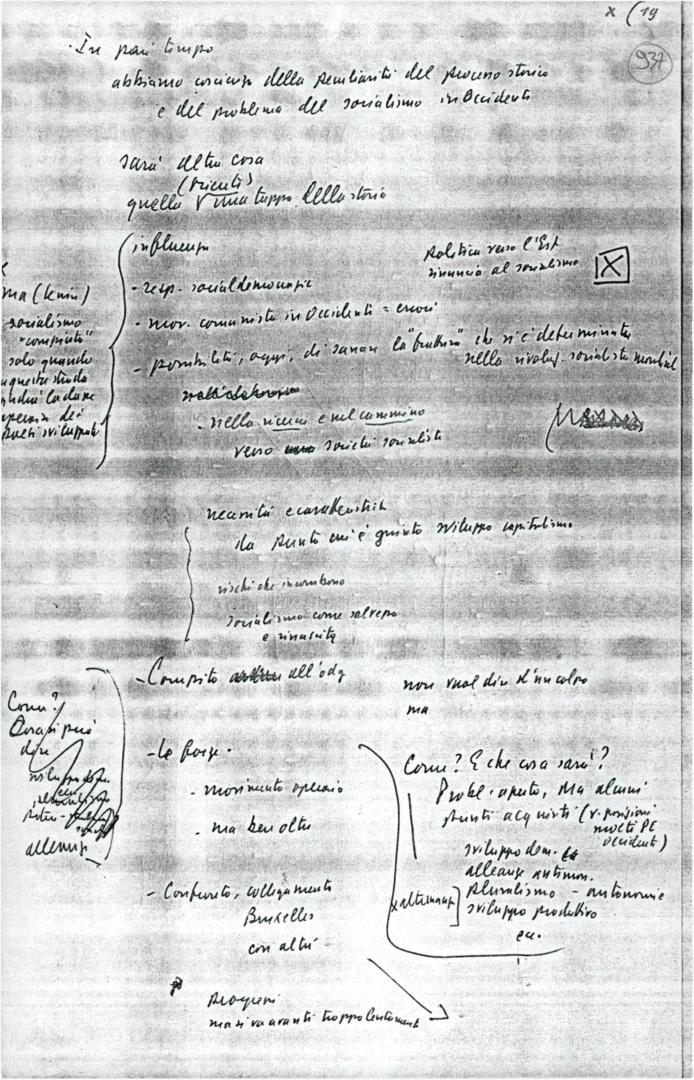 x (19
937
· In pari tempo
abbiamo coscienza della peculiarità del processo storico
e del problema del socialismo in Occidente
sarà altra cosa
(Oriente)
quella V una tappa della storia
influenza
- resp. socialdemocrazie
- mov. comunista in Occidente = errori
- possibilità, oggi, di sanare la "frattura" che si è determinata
nella rivoluz. socialista mondiale
- nella ricerca e nel cammino
verso società socialista
Politica verso l'Est
rinuncia al socialismo
X
ma (Lenin)
socialismo
"compiuto"
solo quando
questa strada
la classe
operaia dei
Paesi sviluppati
necessità e caratteristich
da punto cui è giunto sviluppo capitalismo
rischi che incombono
socialismo come salvezza
e rinascita
- Compito all'odg
non vuol dire d'un colpo
ma
Come?
Cosa si può
dire
alleanze
- Le forze.
- movimento operaio
- ma ben oltre
- Confronto, collegamento
Bruxelles
con altri
Come? E che cosa sarà?
Probl. aperto, ma alcuni
punti acquisiti (v. posizioni
molti PC
occidenti)
sviluppo dem.
alleanze antimon.
pluralismo - autonomie
sviluppo produttivo
ecc.
x alleanze
Progressi
ma si va avanti troppo lentament